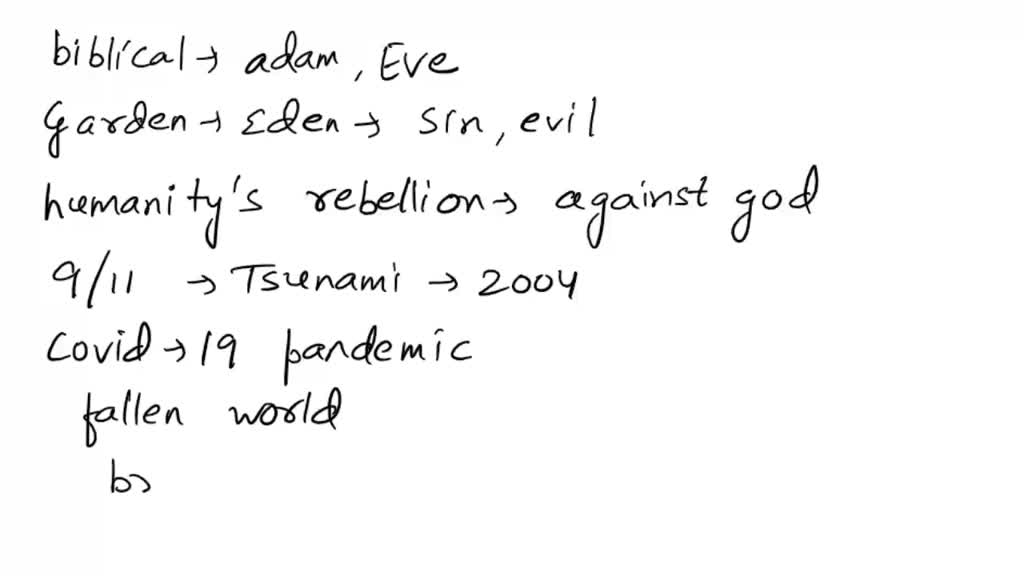 biblical → adam, Eve
Garden → Eden → sin, evil
humanity's rebellion → against god
9/11 → Tsunami → 2004
Covid → 19 pandemic
fallen world